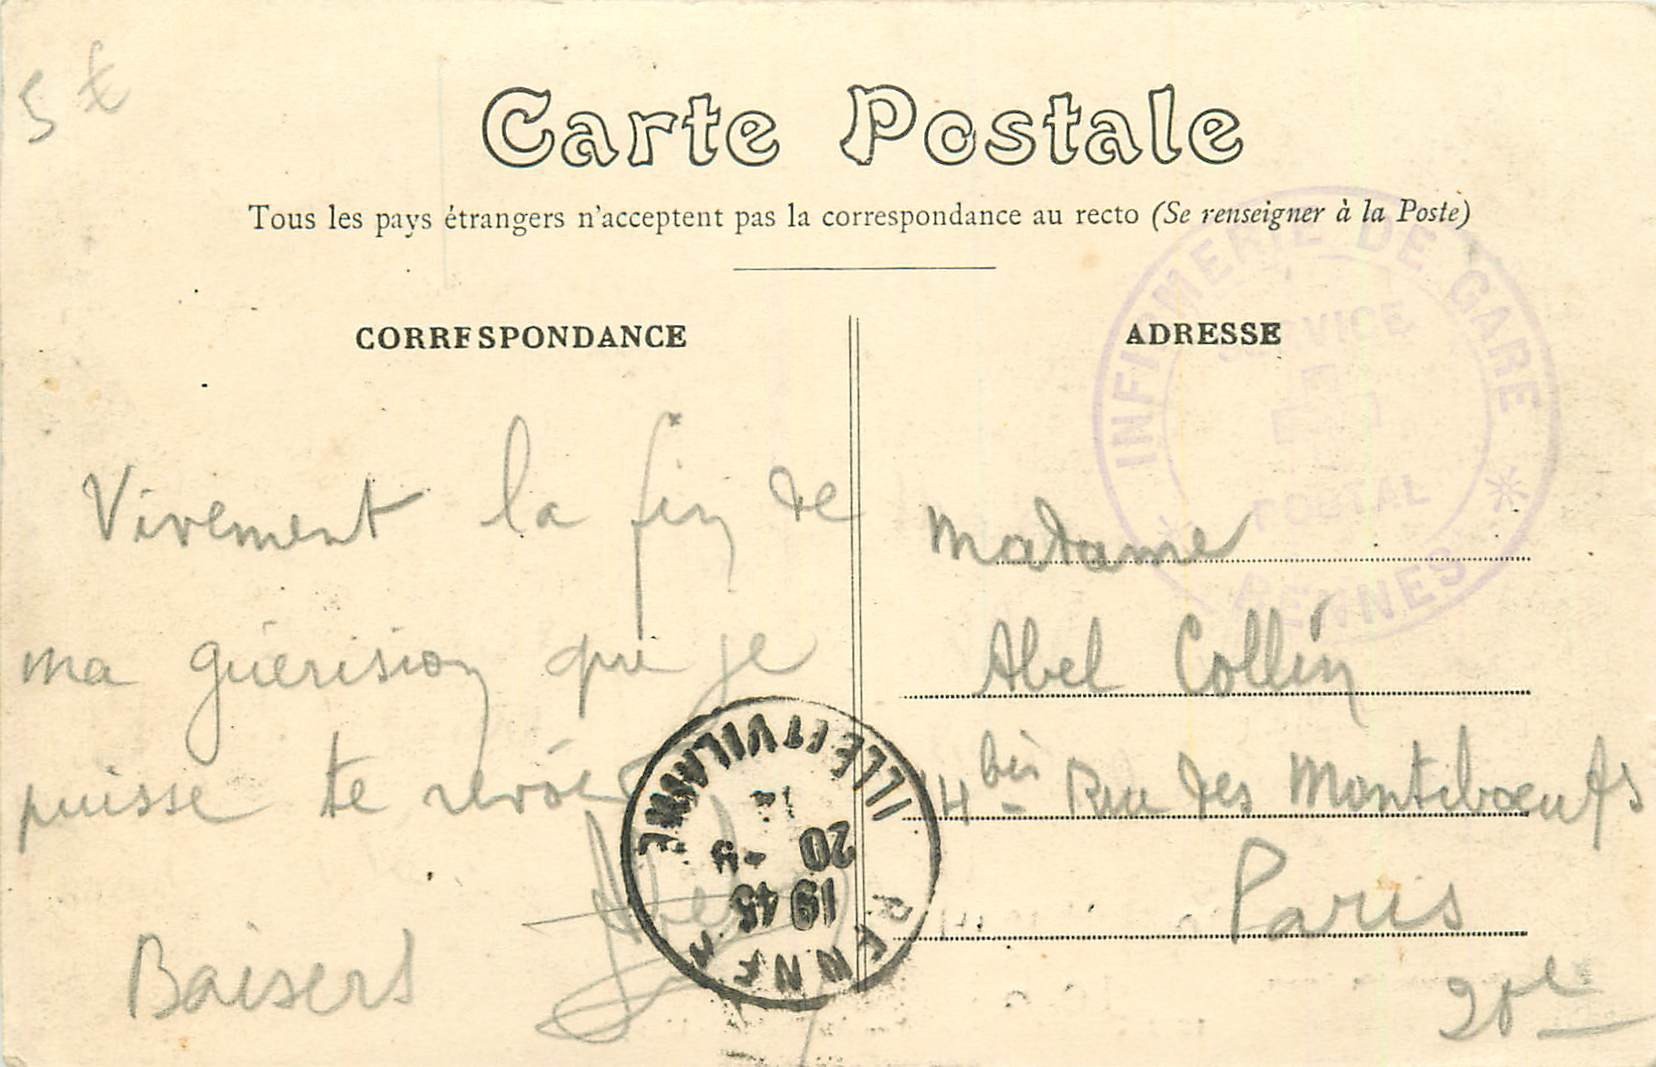 5 €
Carte Postale
Tous les pays étrangers n'acceptent pas la correspondance au recto (Se renseigner à la Poste)
CORRESPONDANCE
Vivement la fin de
ma guérision que je
puisse te revoir
Abel
Baisers
ADRESSE
Madame
Abel Collin
4 bis Rue des Montiboeufs
Paris
20e
INFIRMERIE DE GARE
SERVICE
POSTAL
* RENNES *
RENNES
19 45
20
ILLE ET VILAINE